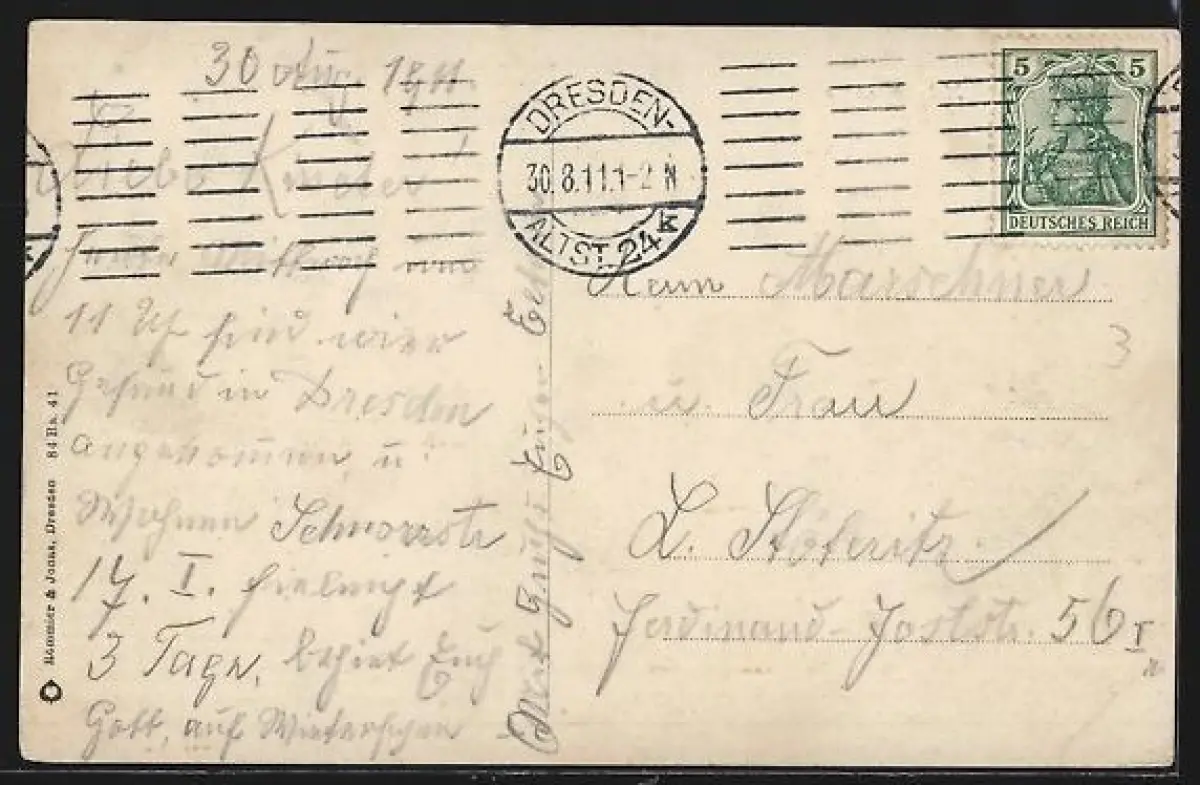 30 Aug. 1911.
Liebe Kinder!
Heute Mittwoch um
11 Uhr sind wir
Gesund in Dresden
angekommen u.
Wohnen Schnorrstr
17. I.
3 Tage, behüt Euch
Gott, auf Wiedersehen
Mit Gruß Eure Eltern
DRESDEN-
30.8.11.1-2 N
ALTST. 24 k
5 5
DEUTSCHES REICH
Herrn Marschner
u. Frau
L. Stötteritz.
Ferdinand-Joststr. 56 I
3
Rommler & Jonas, Dresden 84 Ra. 41